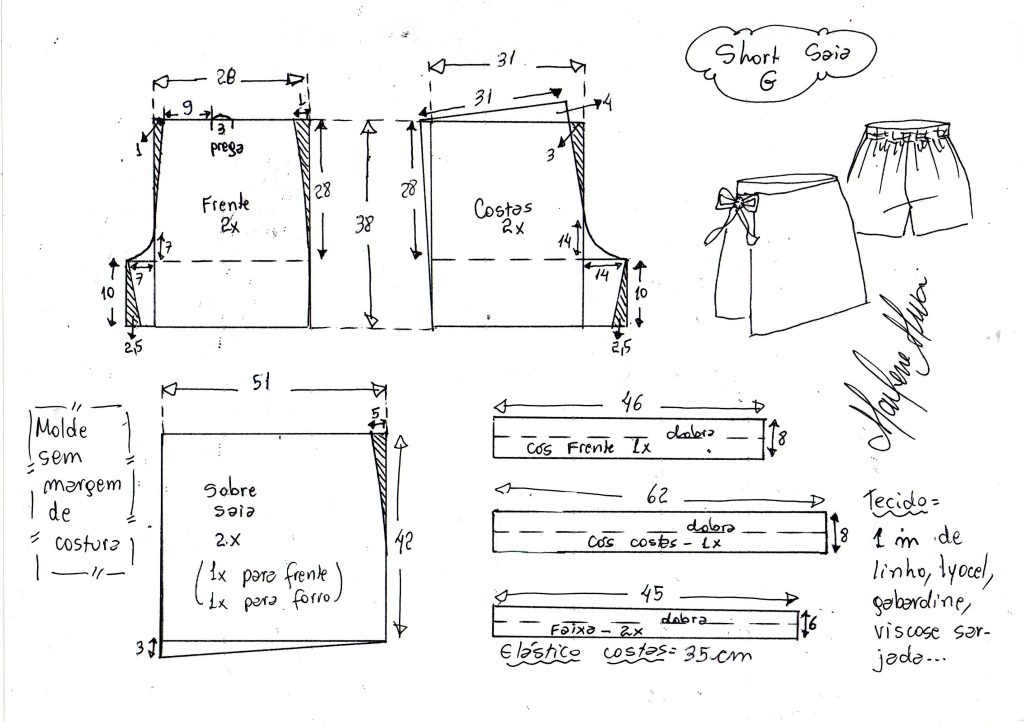 Short Saia
G
28
9
1
1
3
prega
28
Frente
2x
7
7
10
2,5
38
31
31
4
3
28
Costas
2x
14
14
10
2,5
51
5
Molde
sem
margem
de
costura
Sobre
saia
2x
(1x para frente)
(1x para forro)
42
3
46
dobra
cos Frente 1x
8
62
dobra
Cós costas - 1x
8
45
dobra
Faixa - 2x
6
Elástico costas = 35cm
Tecido =
1 m de
linho, tyocel,
gabardine,
viscose sar-
jada...